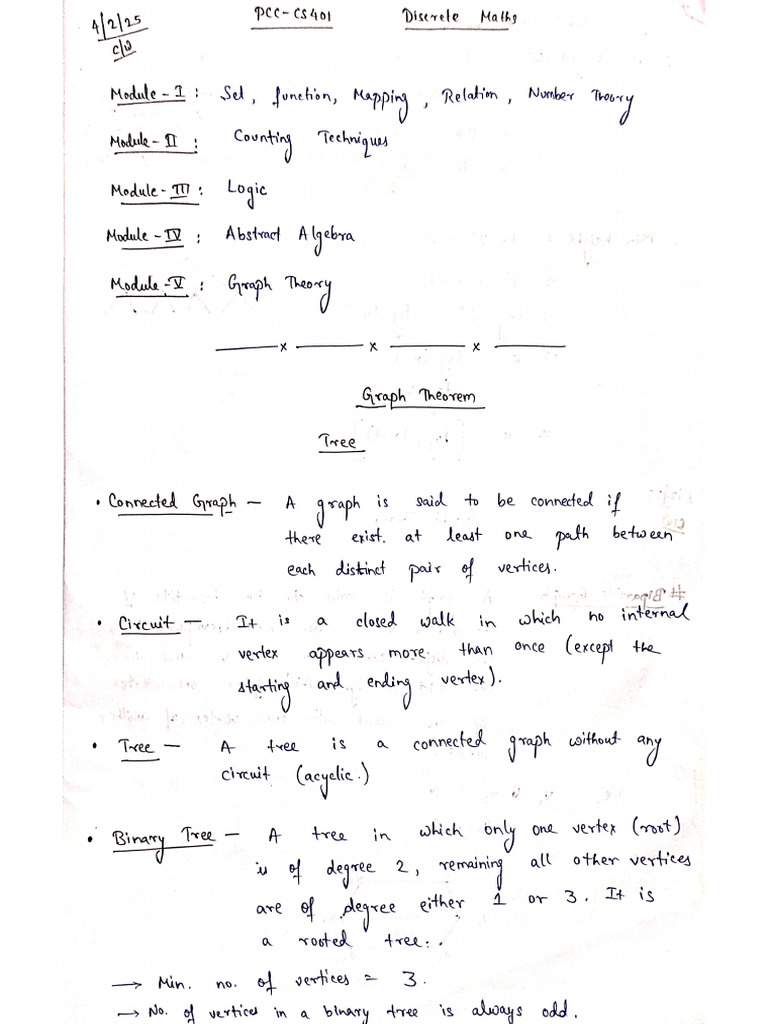 4/2/25
C/W
PCC-CS401 Discrete Maths
Module-I : Set, function, Mapping, Relation, Number Theory
Module-II : Counting Techniques
Module-III : Logic
Module-IV : Abstract Algebra
Module-V : Graph Theory
x x x
Graph Theorem
Tree
• Connected Graph — A graph is said to be connected if
there exist. at least one path between
each distinct pair of vertices.
• Circuit — It is a closed walk in which no internal
vertex appears more than once (except the
starting and ending vertex).
• Tree — A tree is a connected graph without any
circuit (acyclic.)
• Binary Tree — A tree in which only one vertex (root)
is of degree 2, remaining all other vertices
are of degree either 1 or 3. It is
a rooted tree.
→ Min. no. of vertices = 3.
→ No. of vertices in a binary tree is always odd.